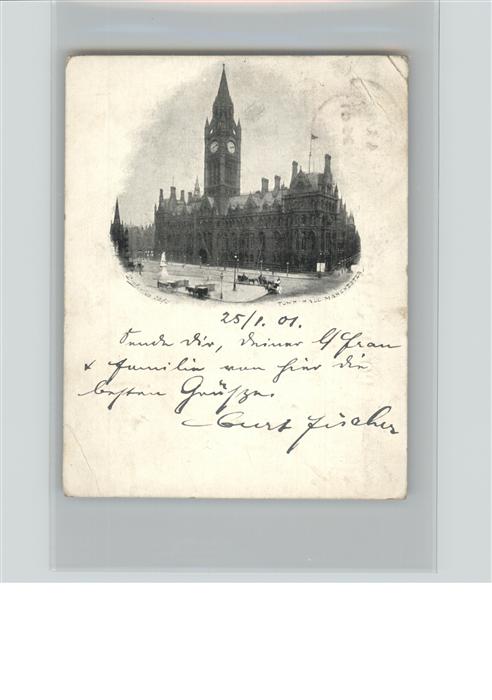 TOWN HALL MANCHESTER.
25/1. 01.
Sende Dir, deiner G Frau
& Familie von hier die
besten Grüsze.
Curt Fischer